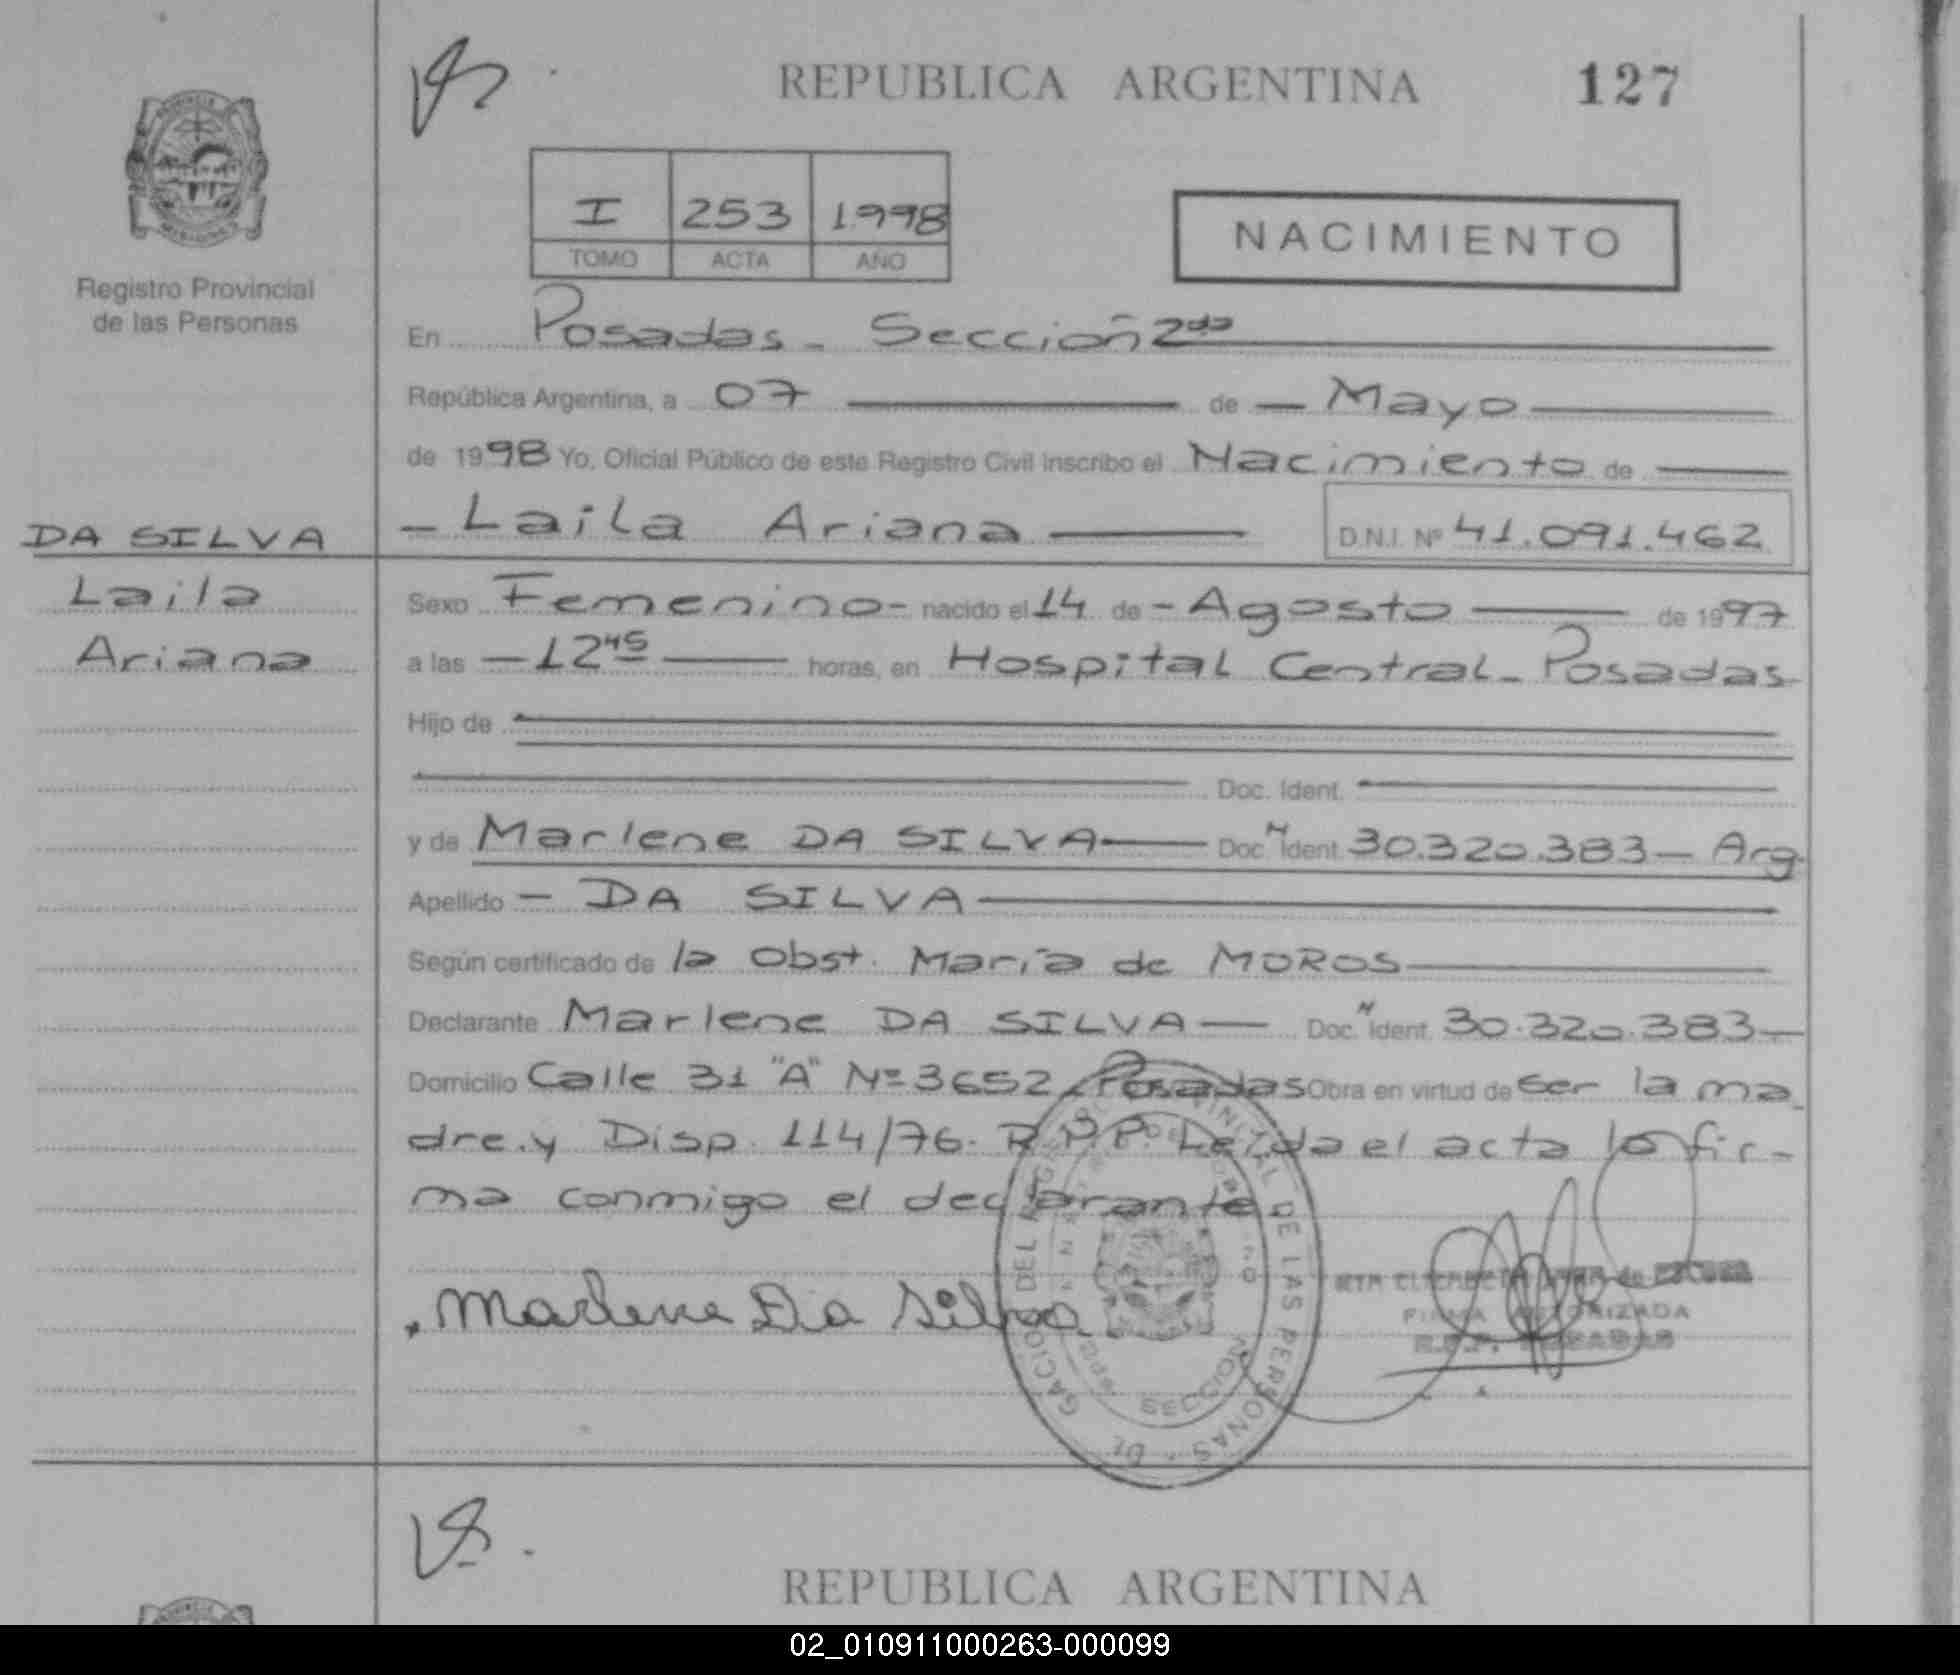 REPUBLICA ARGENTINA 127
PROVINCIA
MISIONES
Registro Provincial
de las Personas
I 253 1998
TOMO ACTA AÑO
NACIMIENTO
En Posadas - Sección 2da
República Argentina, a 07 de - Mayo
de 1998 Yo, Oficial Público de este Registro Civil inscribo el Nacimiento de
- Laila Ariana D.N.I. Nº 41.091.462
DA SILVA
Laila
Ariana
Sexo Femenino - nacido el 14 de - Agosto de 1997
a las - 12 45 horas, en Hospital Central - Posadas
Hijo de
Doc. Ident.
y de Marlene DA SILVA Doc. N Ident. 30.320.383 - Arg.
Apellido - DA SILVA
Según certificado de la Obst. María de MOROS
Declarante Marlene DA SILVA - Doc. N Ident. 30.320.383 -
Domicilio Calle 31 "A" Nº 3652 - Posadas Obra en virtud de ser la ma
dre.y Disp. 114/76. R.P.P. Leída el acta la fir-
ma conmigo el declarante
Marlene Da Silva
DE LAS PERSONAS
SECCION
FIRMA AUTORIZADA
R.P.P. POSADAS
REPUBLICA ARGENTINA
02_010911000263-000099